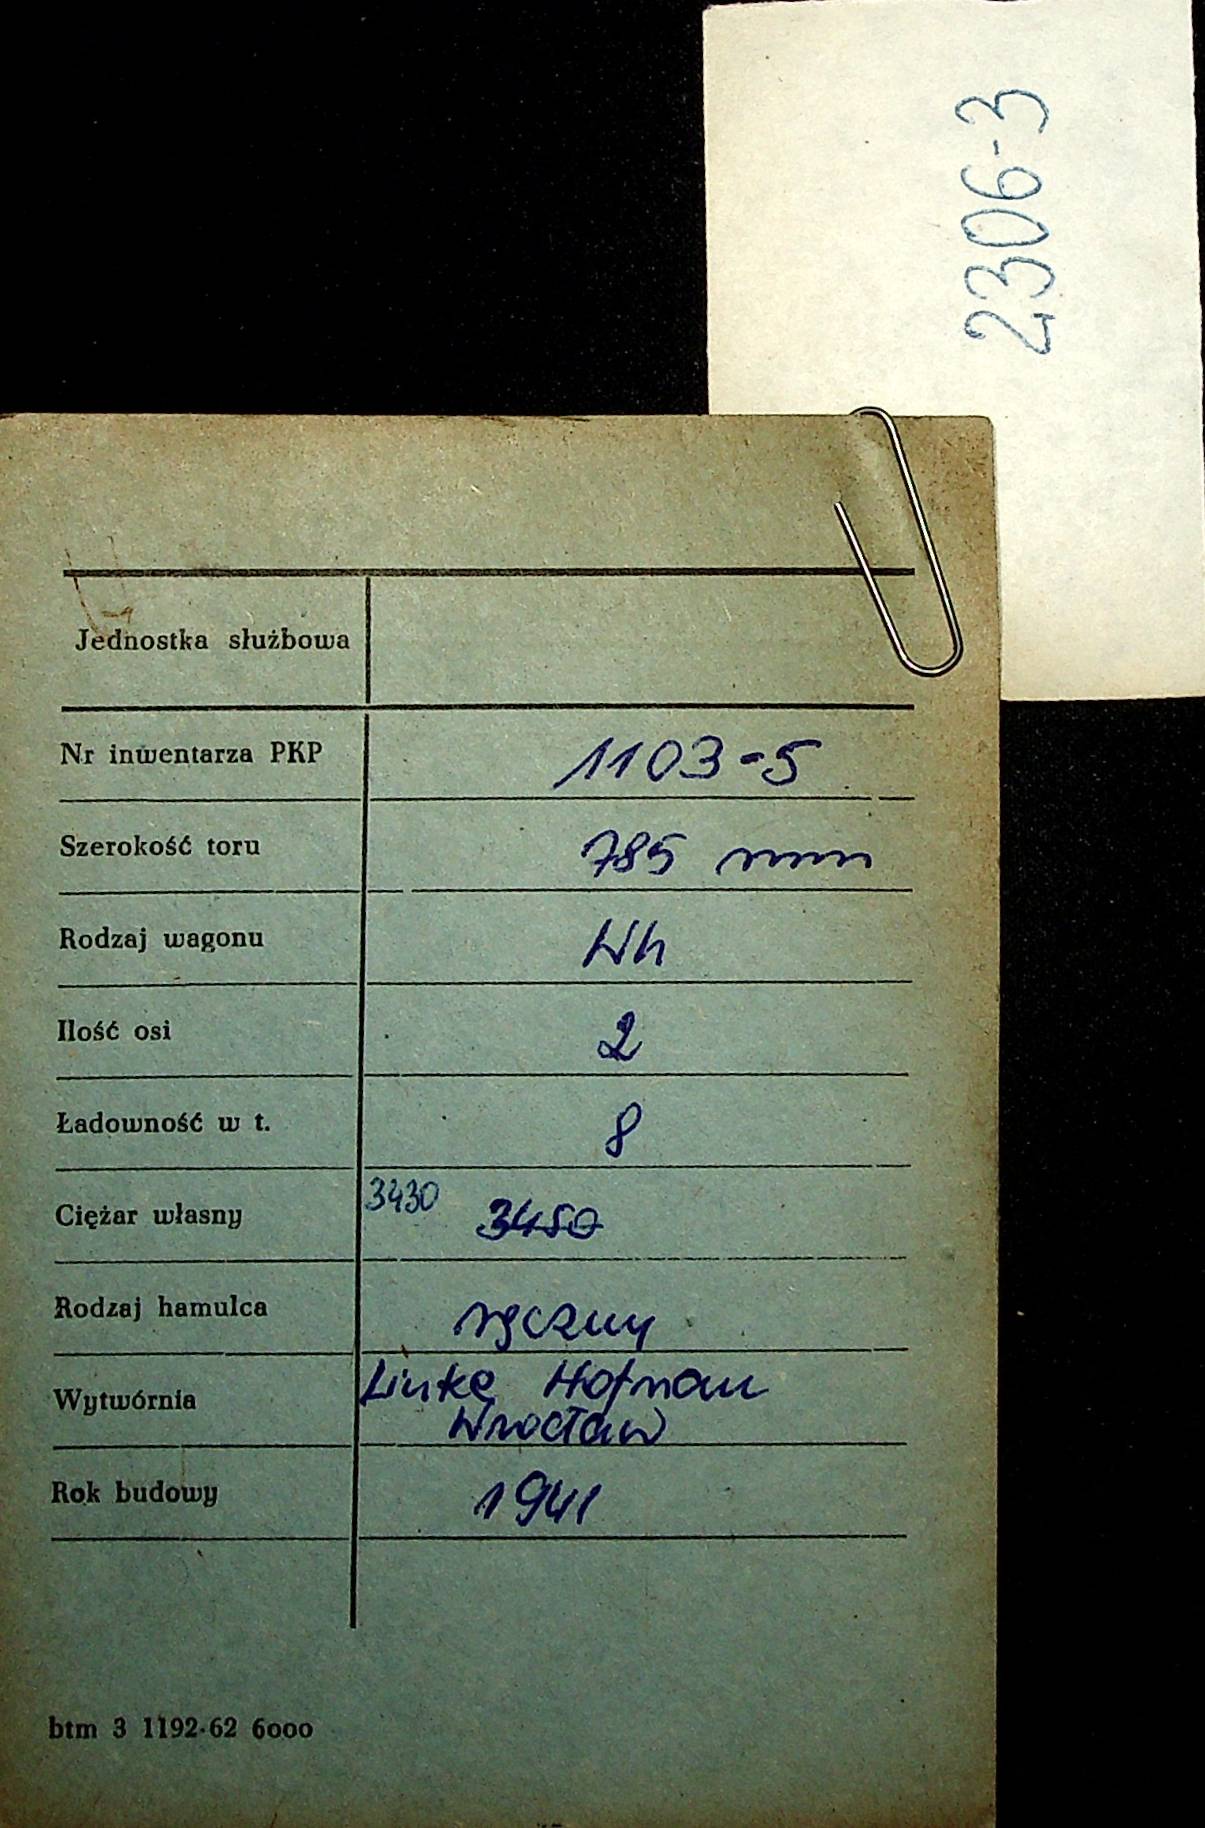 2306-3
Jednostka służbowa
Nr inwentarza PKP 1103-5
Szerokość toru 785 mm
Rodzaj wagonu Wh
Ilość osi 2
Ładowność w t. 8
Ciężar własny 3430 3450
Rodzaj hamulca ręczny
Wytwórnia Linke Hofman
Wrocław
Rok budowy 1941
btm 3 1192-62 6000